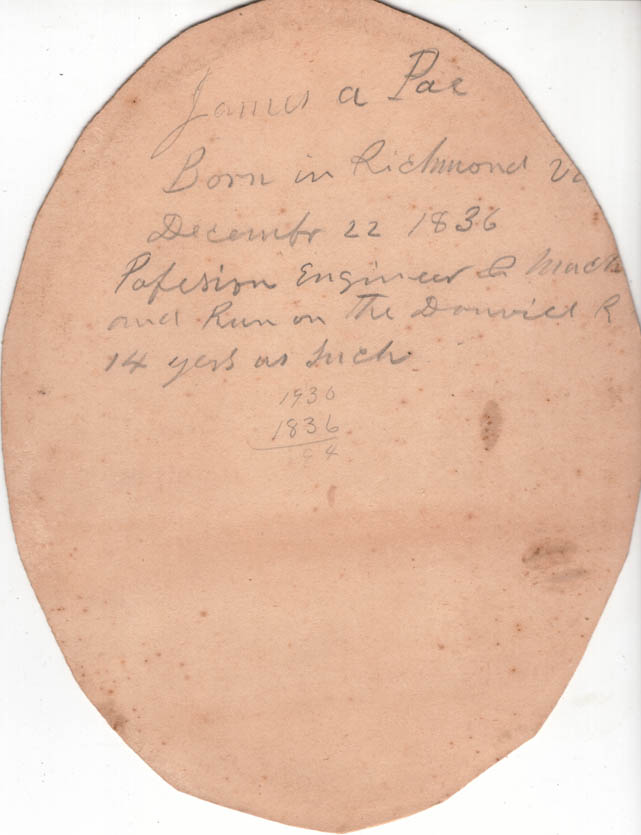 James a Pae
Born in Richmond Va
Decembr 22 1836
Pofesion Engineer & Mach
and Run on The Danvill R
14 yers as Such
1930
1836
94